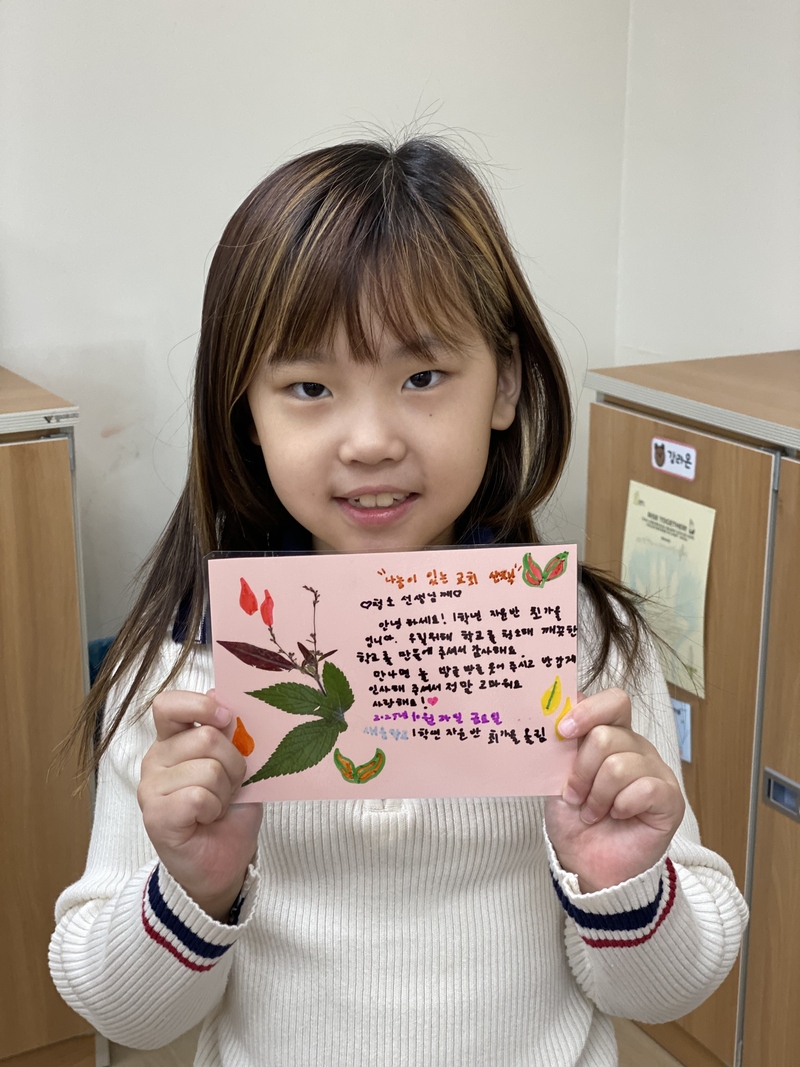 "나눔이 있는 교회 산책"
♡청소 선생님께♡
안녕하세요! 1학년 자윤반 최가을
입니다. 우릴위해 학교를 청소해 깨끗한
학교를 만들어 주셔서 감사해요.
만나면 늘 방글방글 웃어 주시고 반갑게
인사해 주셔서 정말 고마워요
사랑해요!♥
2025년 10월 24일 금요일
1학년 자윤반 최가을 올림
강라온